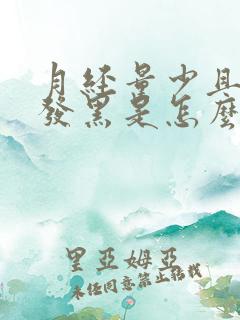 月经量少且
發黑是怎麼
里亞姆亞
未经同意禁止转载